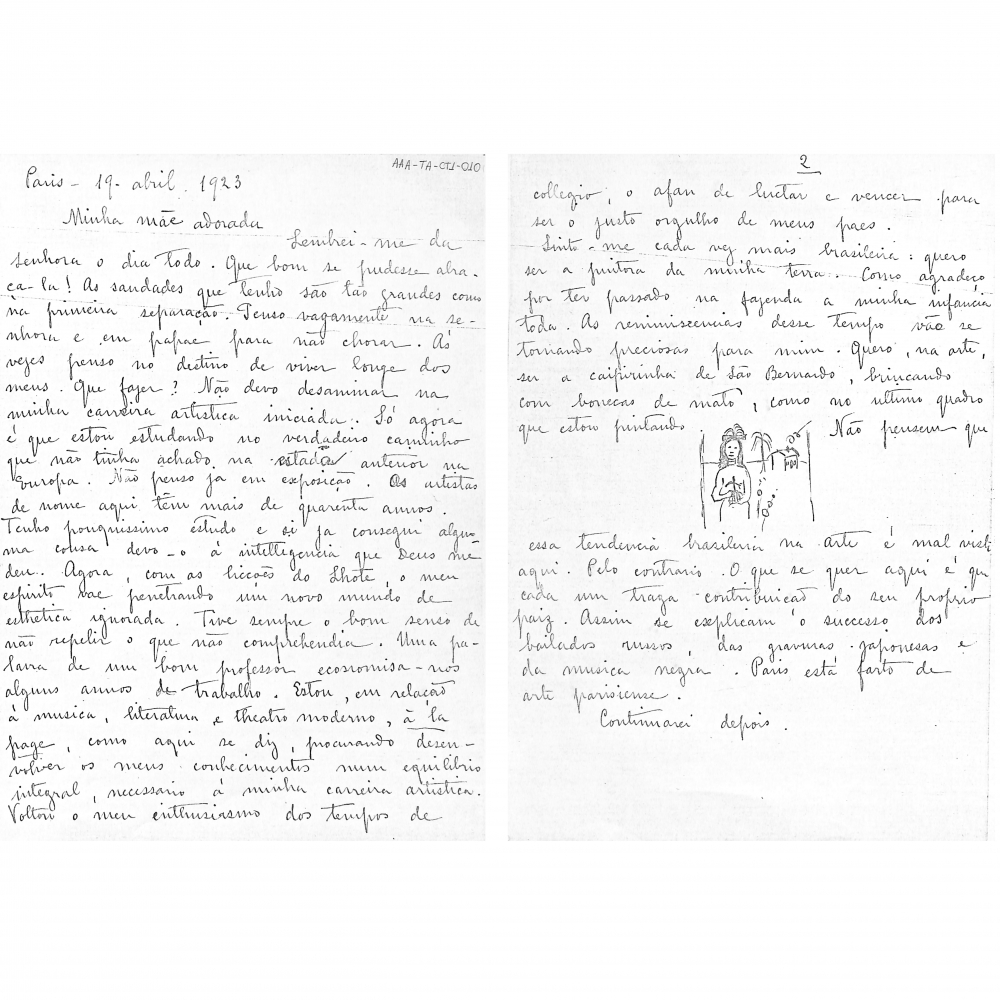 AAA-TA-CT1-010
Paris - 19 - abril. 1923
Minha mãe adorada
Lembrei-me da
senhora o dia todo. Que bom se pudesse abra-
ça-la! As saudades que tenho são tão grandes como
na primeira separação. Penso vagamente na se-
nhora e em papae para não chorar. As
vezes penso no destino de viver longe dos
meus. Que fazer? Não devo desanimar na
minha carreira artistica iniciada. Só agora
é que estou estudando no verdadeiro caminho
que não tinha achado na estada anterior na
Europa. Não penso ja em exposição. Os artistas
de nome aqui têm mais de quarenta annos.
Tenho pouquissimo estudo e si ja consegui algu-
ma cousa devo-o à intelligencia que Deus me
deu. Agora, com as licções do Lhote, o meu
espirito vae penetrando um novo mundo de
esthetica ignorada. Tive sempre o bom senso de
não repelir o que não comprehendia. Uma pa-
lavra de um bom professor economisa-nos
alguns annos de trabalho. Estou, em relação
à musica, literatura e theatro moderno, à la
page, como aqui se diz, procurando desen-
volver os meus conhecimentos num equilibrio
integral, necessario à minha carreira artistica.
Voltou o meu enthusiasmo dos tempos de
2
collegio, o afan de luctar e vencer para
ser o justo orgulho de meus paes.
Sinto-me cada vez mais brasileira: quero
ser a pintora da minha terra. Como agradeço
por ter passado na fazenda a minha infancia
toda. As reminiscencias desse tempo vão se
tornando preciosas para mim. Quero, na arte,
ser a caipirinha de São Bernardo, brincando
com bonecas de mato, como no ultimo quadro
que estou pintando. Não pensem que
essa tendencia brasileira na arte é mal vista
aqui. Pelo contrario. O que se quer aqui é que
cada um traga contribuição do seu proprio
paiz. Assim se explicam o successo dos
bailados russos, das gravuras japonesas e
da musica negra. Paris está farto de
arte parisiense.
Continuarei depois.